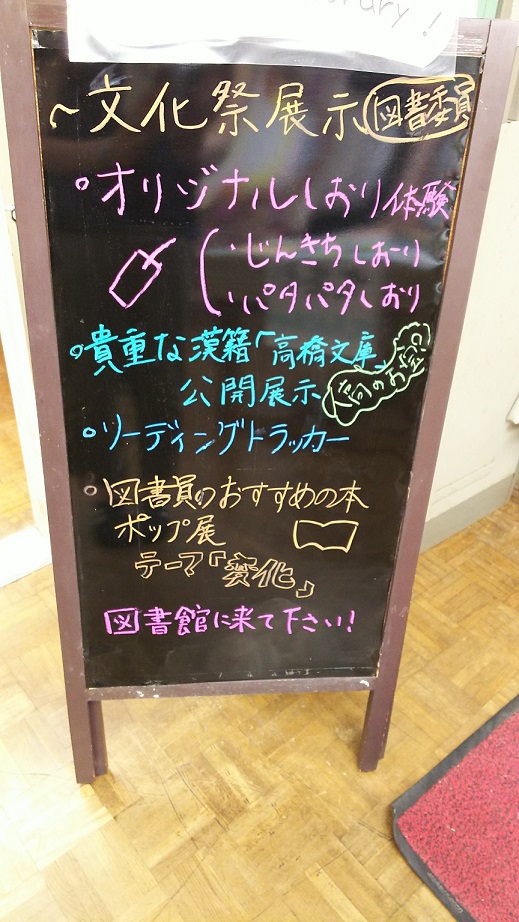 ～文化祭展示 図書委員
○オリジナルしおり体験
・じんきちしおり
・パタパタしおり
○貴重な漢籍「高橋文庫」
公開展示
○リーディングトラッカー
○図書員のおすすめの本
ポップ展
テーマ「変化」
図書館に来て下さい!